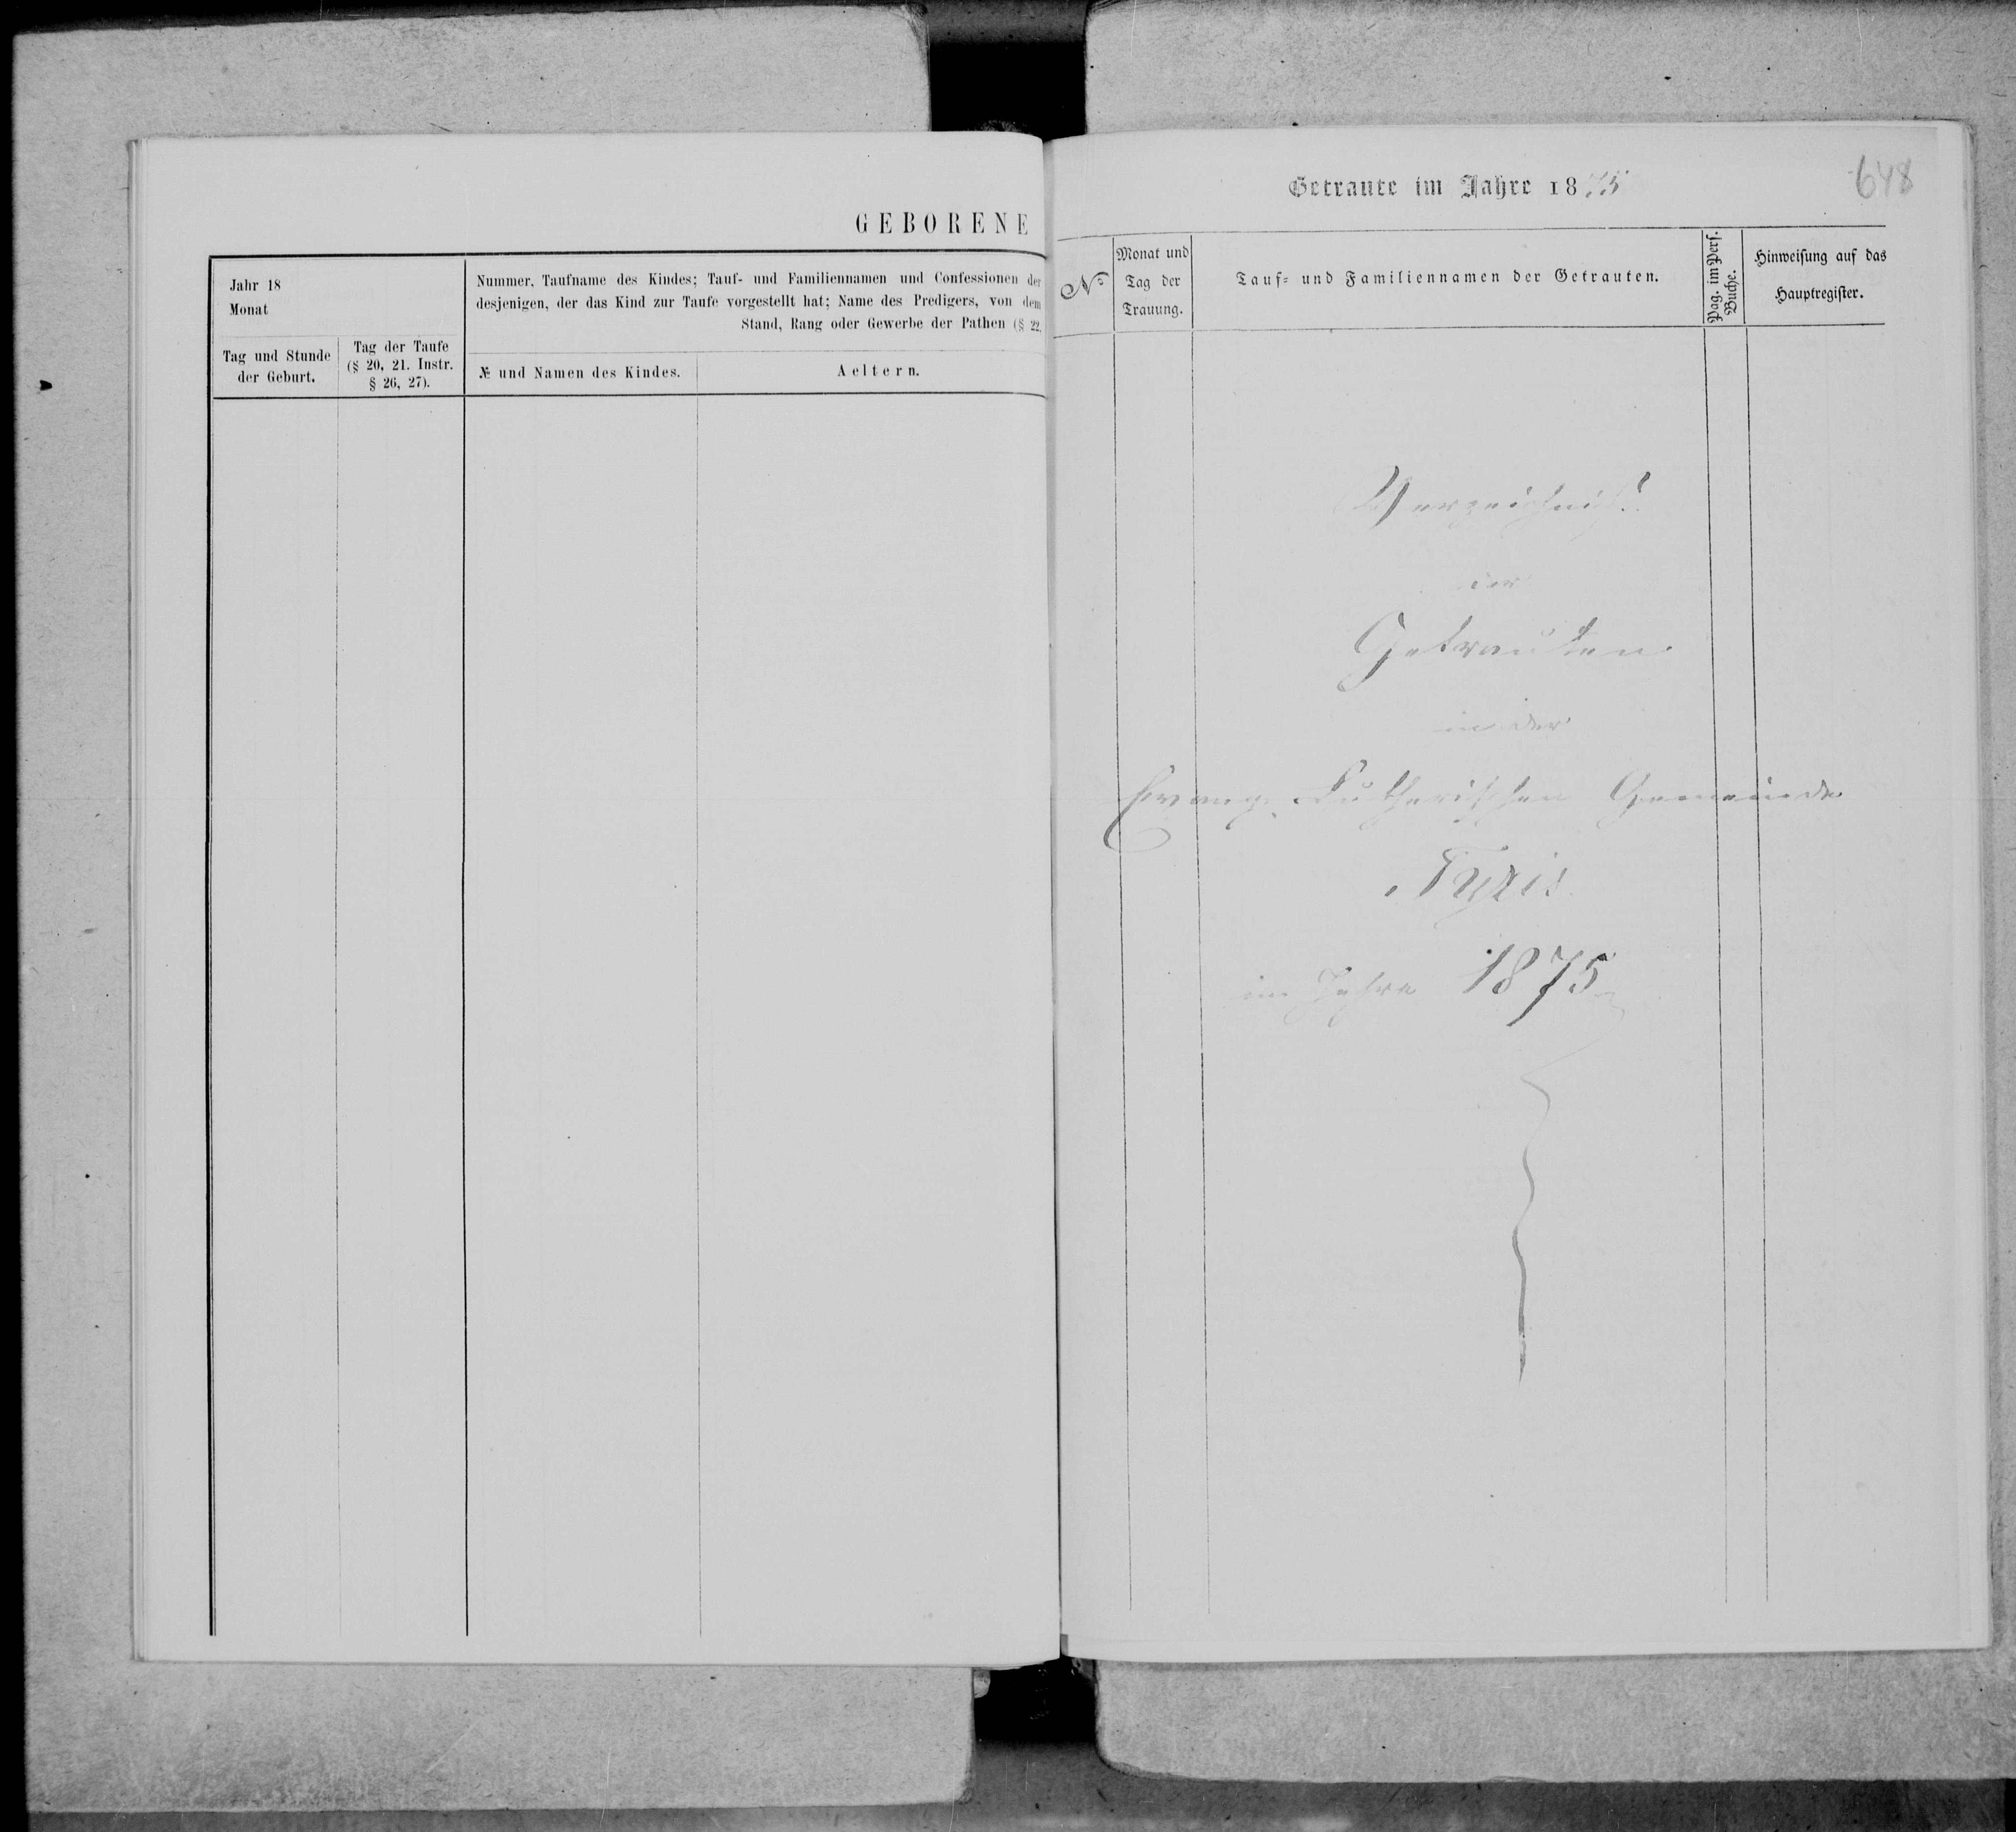 GEBORENE
Jahr 18
Monat
Nummer, Taufname des Kindes; Tauf- und Familiennamen und Confessionen der
desjenigen, der das Kind zur Taufe vorgestellt hat; Name des Predigers, von dem
Stand, Rang oder Gewerbe der Pathen (§ 22,
Tag und Stunde
der Geburt.
Tag der Taufe
(§ 20, 21. Instr.
§ 26, 27).
№ und Namen des Kindes.
Aeltern.
Getraute im Jahre 1875
648
№
Monat und
Tag der
Trauung.
Tauf- und Familiennamen der Getrauten.
Pag. im Pers.
Buche.
Hinweisung auf das
Hauptregister.
Verzeichniß
der
Getrauten
in der
Evang. Lutherischen Gemeinde
im Jahre 1875